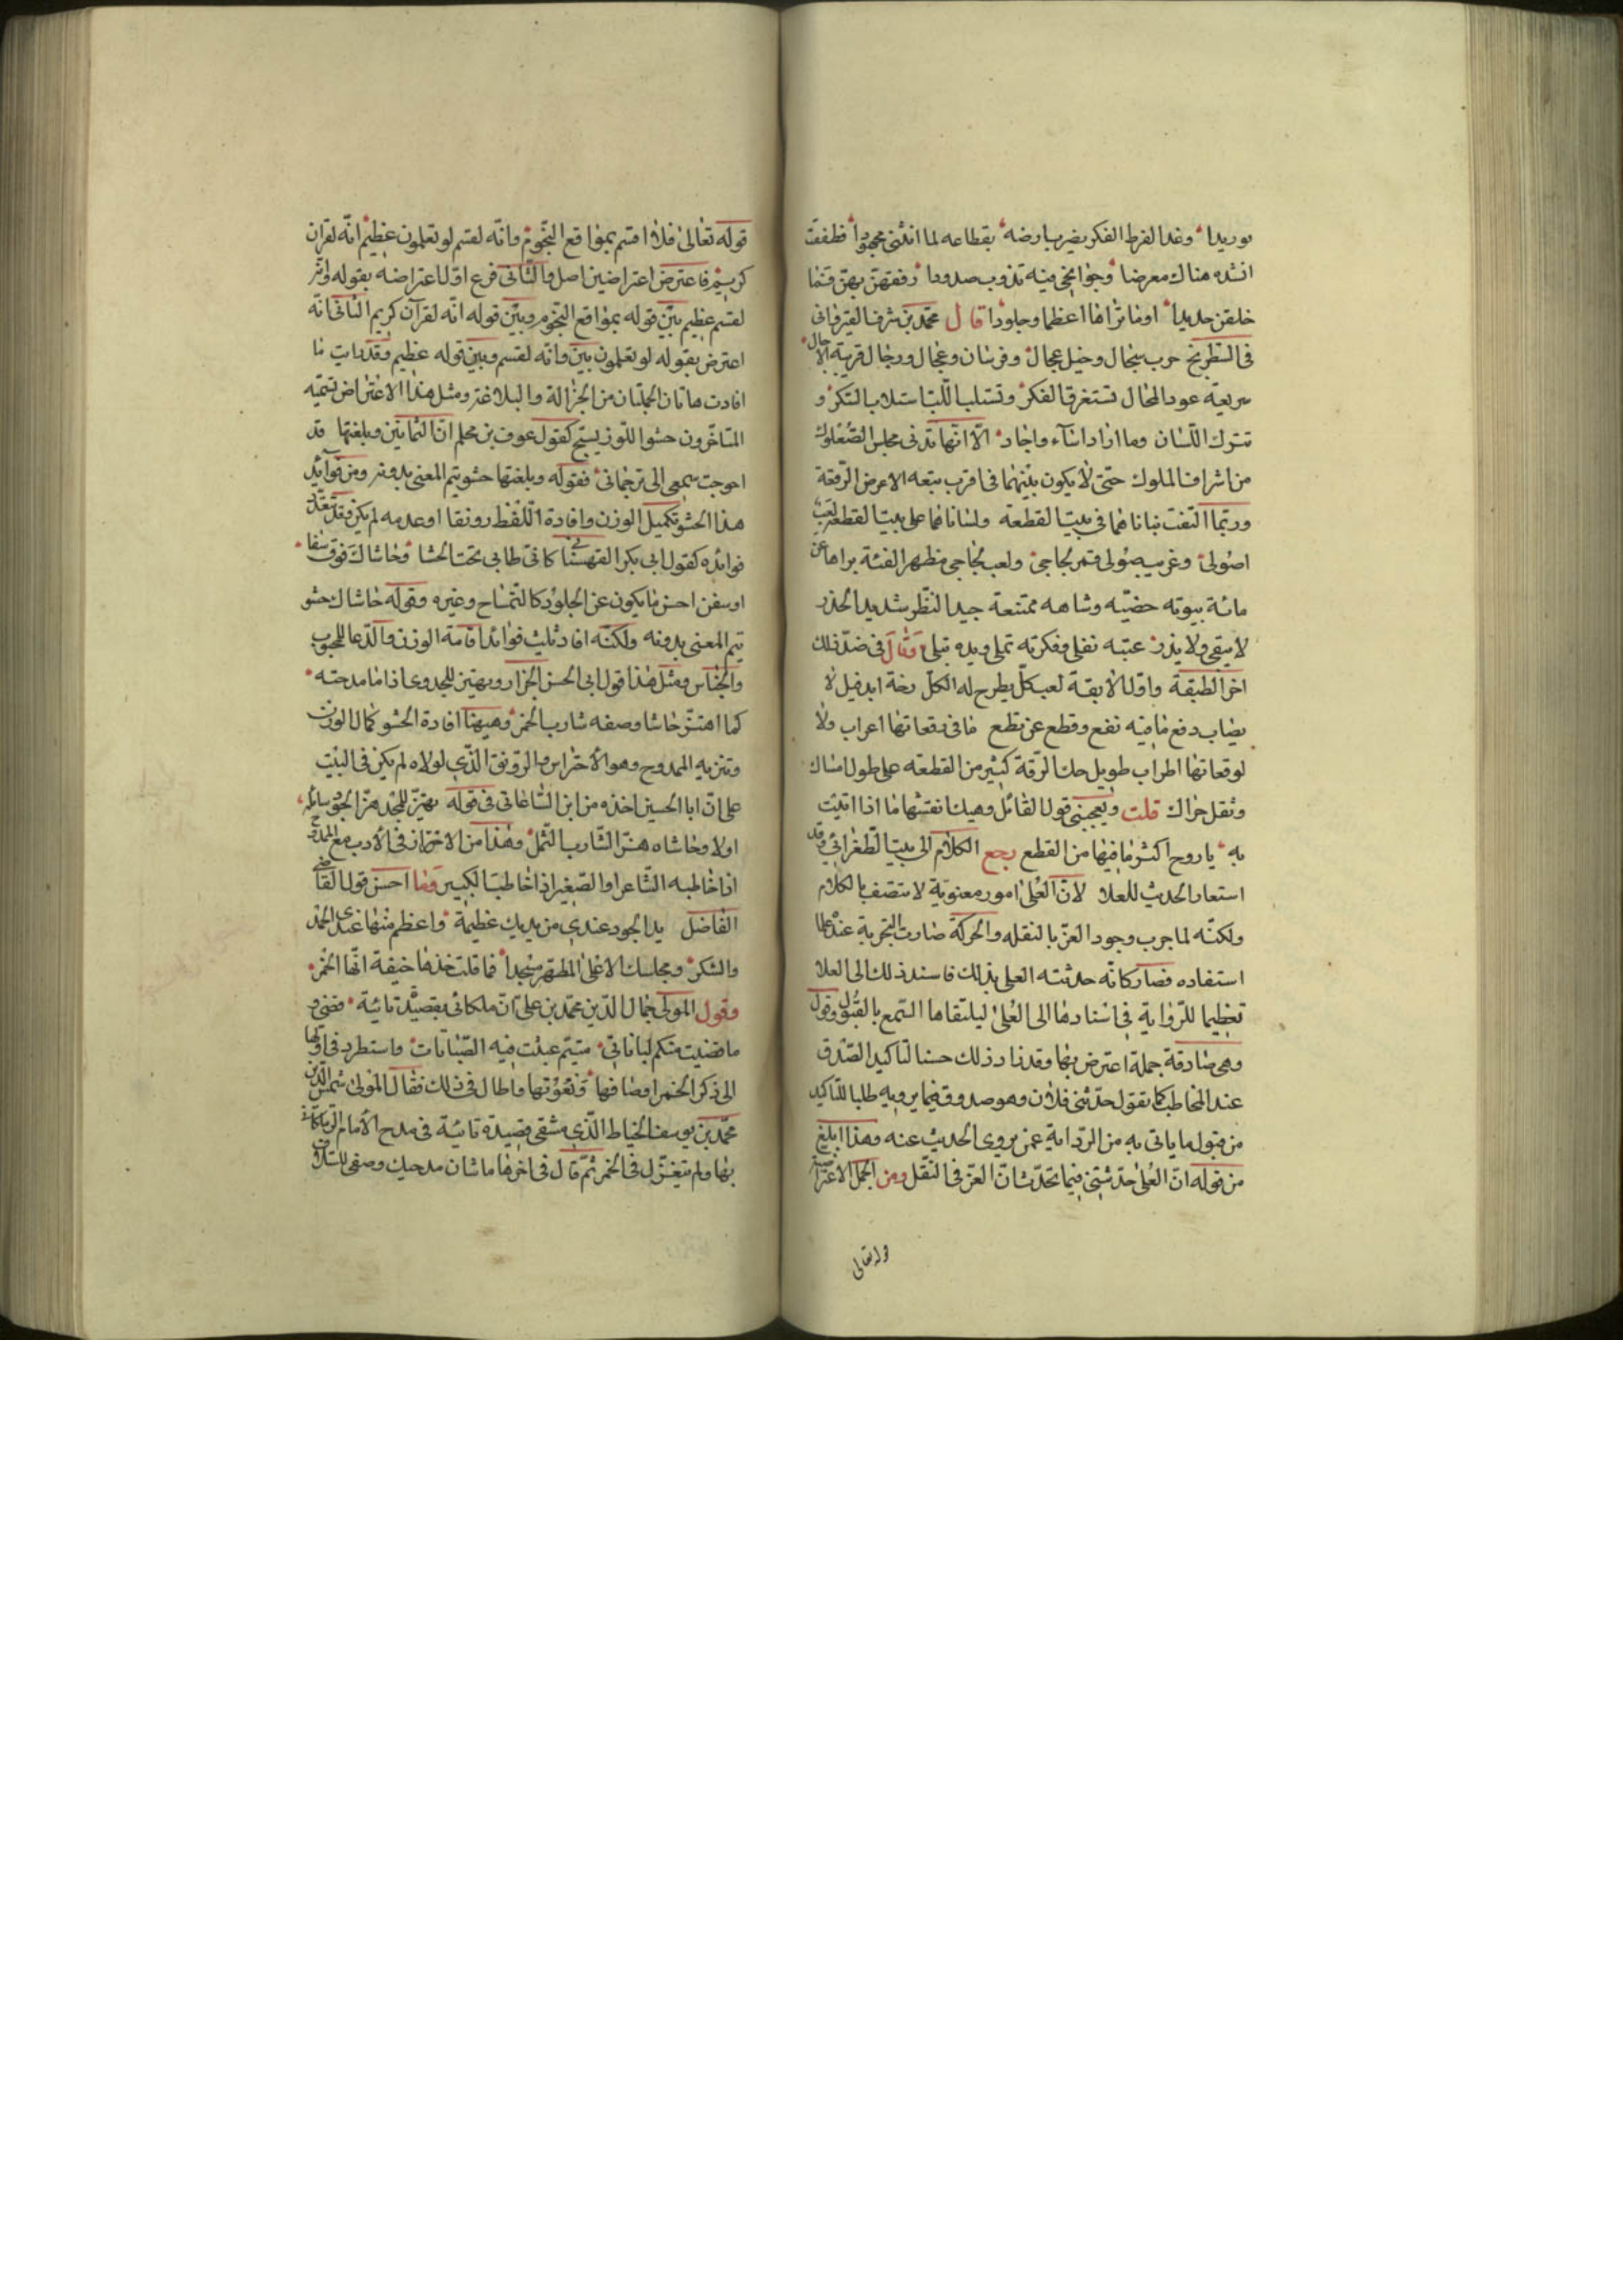 توريدا وغدا لفرط الفكر يضرب ارضه بقطاعه لما انثنى مجهودا فطفقت
انشده هناك معرضا وجوانحي فيه تذوب صدودا رفقهن بهن فما
خلقن حديدا اوما تراها اعظما وجلودا قال محمد بن شرف القيرواني
في الشطرنج حرب سجال وخيل عجال وفرسان وعجال ورجال قريبة الآجال
سريعة عود المحال تستغرق الفكر وتسلب اللب استلاب السكر و
تترك اللسان وما اراد اساء واجاد الا انها تدني مجلس الصعلوك
من اشراف الملوك حتى لا يكون بينهما في اقرب بقعه الا عرض الرقعة
وربما التفت بناناهما في بيت القطعة ولساناهما على بيت القطعه لعب
اصولى وغريب صولى قمر لجاجي ولعب لجاجي مظهر الفئة يراها عن
مائة بيوته حصينه وشاهه ممتنعة جيد النظر شديد الحذر
لا يبقى ولا يذر عينه تفلى وفكرته تملى ويده تبلى وقال في ضد ذلك
اخر الطبقة واول الابقة لعب كل يطرح له الكل رخة ابد فيل لا
يصاب دفع ما فيه نفع وقطع عن نطع ما في دفعاتها اعراب ولا
لوقعاتها اطراب طويل حك الرقة كثير من القطعه على طول امساك
ونقل حراك قلت ويعجبني قول القائل وهيك نقشها ما اذا اتيت
به يا روح اكثر ما فيها من القطع رجع الكلام الى بيت الطغرائي وقد
استعار الحديث للعلا لان العلى امور معنوية لا تتصف بالكلام
ولكنه لما جرب وجود العز بالنقله والحركة صارت التجربة عنده علما
استفاده فصار كانه حدثته العلى بذلك فاسند ذلك الى العلا
تعظيما للرواية في اسنادها الى العلى ليلتقاها السمع بالقبول وقوله
وهي صادقة جملة اعترض بها وقد زاد ذلك حسنا لتاكيد الصدق
عند المخاطب كما تقول حدثني فلان وهو صدوق فيما يرويه طلبا للتاكيد
من قبول ما ياتي به من الرواية عمن يروى الحديث عنه وهذا ابلغ
من قوله ان العلى حدثتني فيما تحدث ان العز في النقل ومن الجمل الاعتراضية
قوله تعالى
قوله تعالى فلا اقسم بمواقع النجوم وانه لقسم لو تعلمون عظيم انه لقران
كريم فاعترض اعتراضين اصل والثانى فرع اولا اعتراضه بقوله وانه
لقسم عظيم بين قوله بمواقع النجوم وبين قوله انه لقرآن كريم الثانى انه
اعترض بقوله لو تعلمون بين وانه لقسم وبين قوله عظيم وقد رايت ما
افادت هاتان الجملتان من الجزالة والبلاغة ومثل هذا الاعتراض تسميه
المتاخرون حشو اللوزينج كقول عوف بن محلم ان الثمانين وبلغتها قد
احوجت سمعى الى ترجمانى فقوله وبلغتها حشو يتم المعنى بدونه ومن فوائد
هذا الحشو تكميل الوزن وافادة اللفظ رونقا او عدمه لم يكن وقد تتعدد
فوائده كقول ابي بكر القهستانى كانى طابى تحت الحشا وحاشاك فوق سفا
او سفن احسن ما يكون عن الجلود كالتمساح وغيره وقوله حاشاك حشو
يتم المعنى بدونه ولكنه افاد ثلث فوائد اقامة الوزن والدعا للمحبوب
والجناس ومثل هذا قول ابى الحسن الجزار ويهتز للجدوى اذا ما مدحته
كما اهتز حاشا وصفه شارب الخمر وهيهنا افادة الحشو كمال الوزن
وتنزيه الممدوح وهو الاحتراس والرونق الذي لولاه لم يكن في البيت
على ان ابا الحسين اخذه من ابن الساعاتي في قوله يهتز للمجد هز الجو سائله
اولا وحاشاه هز الشارب الثمل وهذا من الاحتراز في الادب مع الممدوح
اذا خاطبه الشاعر او الصغير اذا خاطب الكبير وما احسن قول القاضي
الفاضل يد الجود عندي من يديك عظيمة واعظم منها عندي الحمد
والشكر ومجلسك الاعلى المطهر مسجدا فما قلت خذها خيفة انها الخمر
وقول المولى جمال الدين محمد بن على ان ملكانى بقصيدة تائية قضى و
ما قضيت منكم لباناتى متيم عبثت فيه الصبابات واستطرد في اولها
الى ذكر الخمر اوصافها ونعوتها واطال في ذلك فقال المولى شمس الدين
محمد بن يوسف الخياط الذي مشقى قصيدة تائية في مدح الامام الزملكانى
بها ولم يتغزل في الخمر ثم قال في اخرها ما شان مدحيك وصفى للسلاف